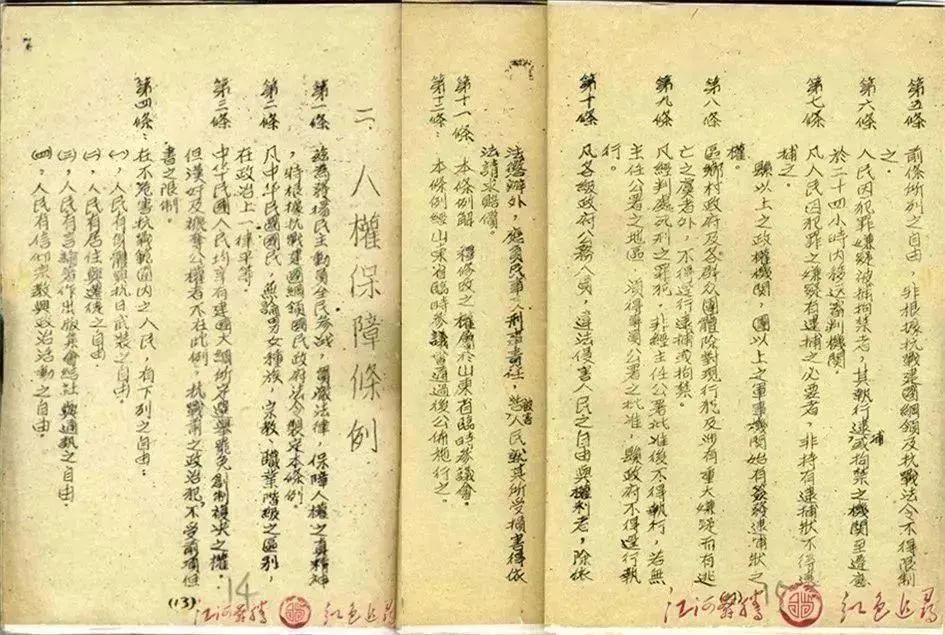 二、人權保障條例
第一條 茲為發揚民主動員全民參战，貫澈法律，保障人權之真精神
，特根據抗戰建國綱領國民政府法令製定本條例。
第二條 凡中华民國國民，無論男女種族，宗教，職業階級之區別，
在政治上一律平等。
第三條 中华民國人民均享有建國大綱所定選舉罷免創制複决之權．
但漢奸及褫奪公權者不在此例．抗戰前之政治犯，不受前項但
書之限制．
第四條：在不危害抗戰範圍内之人民，有下列之自由：
(一)，人民有身體與抗日武装之自由．
(二)，人民有居住與遷徙之自由．
(三)，人民有言論著作出版集會結社與通訊之自由．
(四)，人民有信仰宗教與政治活動之自由．
(13)
14
第五條 前條所列之自由，非根據抗戰建國綱領及抗戰法令不得限制
之．
第六條 人民因犯罪嫌疑被捕拘禁者，其執行逮捕或拘禁之機關至遲應
於二十四小時内移送審判機關．
第七條 凡人民因犯罪之嫌疑有逮捕之必要者，非持有逮捕狀不得逮
捕之．
縣以上之政權機関，團以上之軍事機関始有簽發逮捕狀之
權．
第八條 區鄉村政府及各群众團體除對現行犯及涉有重大嫌疑而有逃
亡之虞者外，不得逕行逮捕或拘禁．
第九條 凡經判處死刑之罪犯，非經主任公署批准後不得執行，若無
主任公署之地區，須得專員公署之批准，縣政府不得逕行執
行．
第十條 凡各級政府公務人員，違法侵害人民之自由與權利者，除依
法懲辦外，應負民事及刑事責任，被害人民就其所受損害得依
法請求賠償．
第十一條 本條例解 釋修改之權屬於山東省臨時參議會．
第十二條：本條例經山東省臨時參議會通過後公佈施行之．
江河奔騰 紅色追尋
江河奔騰 紅色追尋